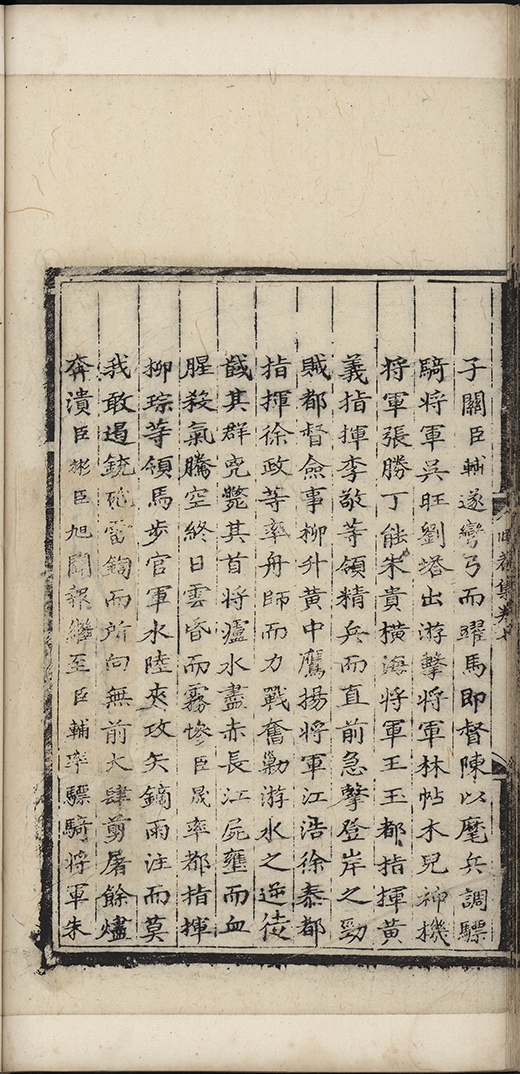 子關臣輔遂彎弓而躍馬即督陳以麾兵調驃
騎將軍吳旺劉塔出游擊將軍林帖木兒神機
將軍張勝丁能朱貴橫海將軍王玉都指揮黃
義指揮李敬等領精兵而直前急擊登岸之勁
賊都督僉事柳升黃中鷹揚將軍江浩徐泰都
指揮徐政等率舟師而力戰奮勦游水之逆徒
截其群兇斃其首將瀘水盡赤長江屍壅而血
腥殺氣騰空終日雲昏而霧慘臣晟率都指揮
柳琮等領馬步官軍水陸夾攻矢鏑雨注而莫
我敢遏銃砲雷鍧而所向無前大肆剪屠餘燼
奔潰臣彬臣旭聞報繼至臣輔率驃騎將軍朱